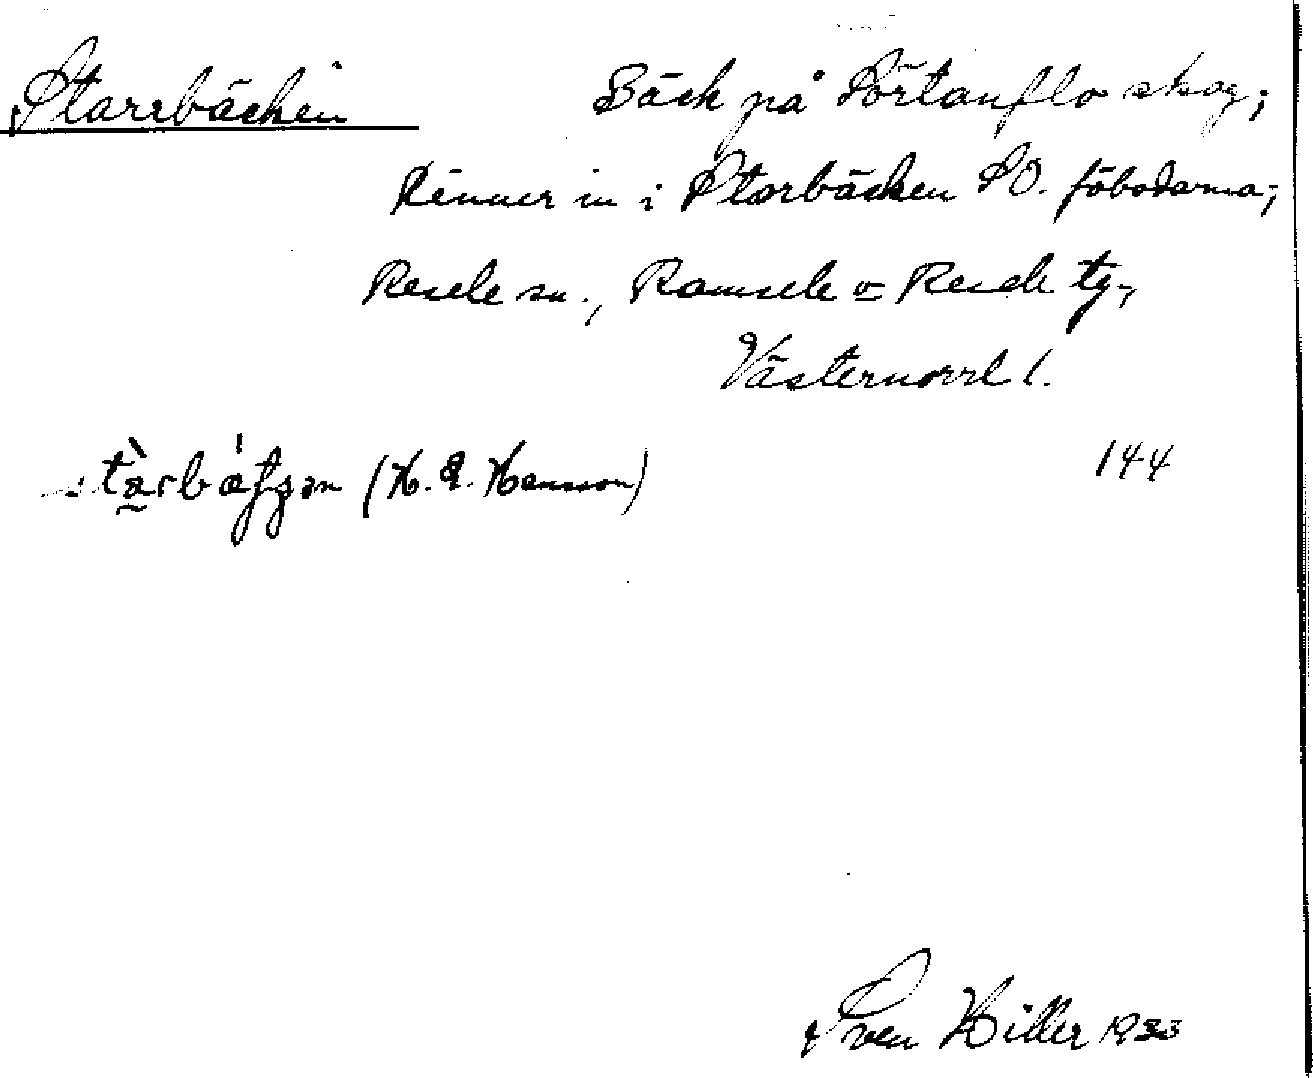 Starrbäcken Bäck på Sörtanflo skog;
Rinner in i Storbäcken SO. fäbodarna;
Resele sn., Ramsele o Resele tg.,
Västernorrl l.
(H. E. Hansson) 144
Sven Hiller 1933